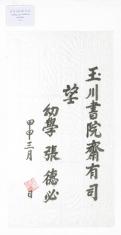 玉川書院齋有司
望
幼學 張德必
甲申三月 日